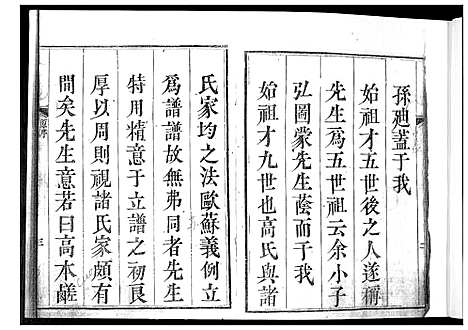 孫廸蓋于我
始祖才五世後之人遂稱
先生爲五世祖云余小子
弘圖蒙先生蔭而于我
始祖才九世也高氏與諸
氏家均之法歐蘇義例立
爲譜譜故無弗同者先生
特用精意于立譜之初良
厚以周則視諸氏家頗有
間矣先生意若曰高本鹺